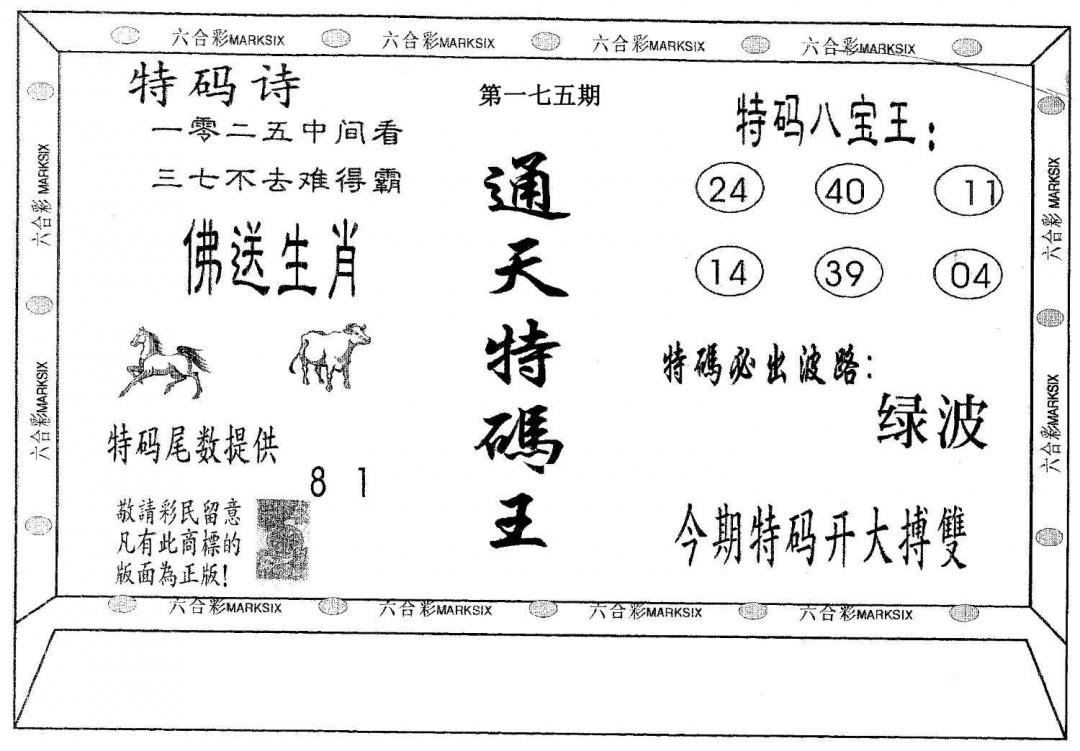 六合彩MARKSIX 六合彩MARKSIX 六合彩MARKSIX 六合彩MARKSIX
六合彩 MARKSIX
六合彩MARKSIX
特码诗
一零二五中间看
三七不去难得霸
佛送生肖
特码尾数提供
8 1
敬請彩民留意
凡有此商標的
版面為正版!
第一七五期
通天特碼王
特码八宝王:
24 40 11
14 39 04
特碼必出波路:
绿波
今期特码开大搏雙
六合彩 MARKSIX
六合彩MARKSIX
六合彩MARKSIX 六合彩MARKSIX 六合彩MARKSIX 六合彩MARKSIX